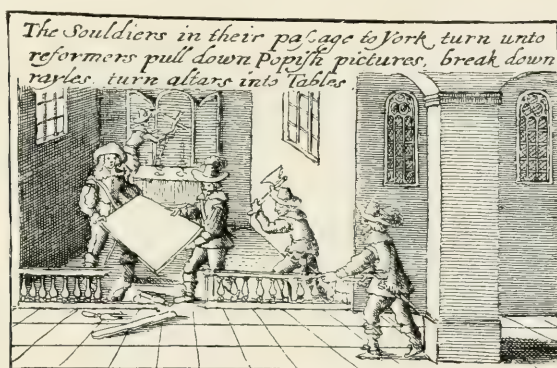 The Souldiers in their paſsage to York turn unto
reformers pull down Popiſh pictures, break down
rayles, turn altars into Tables